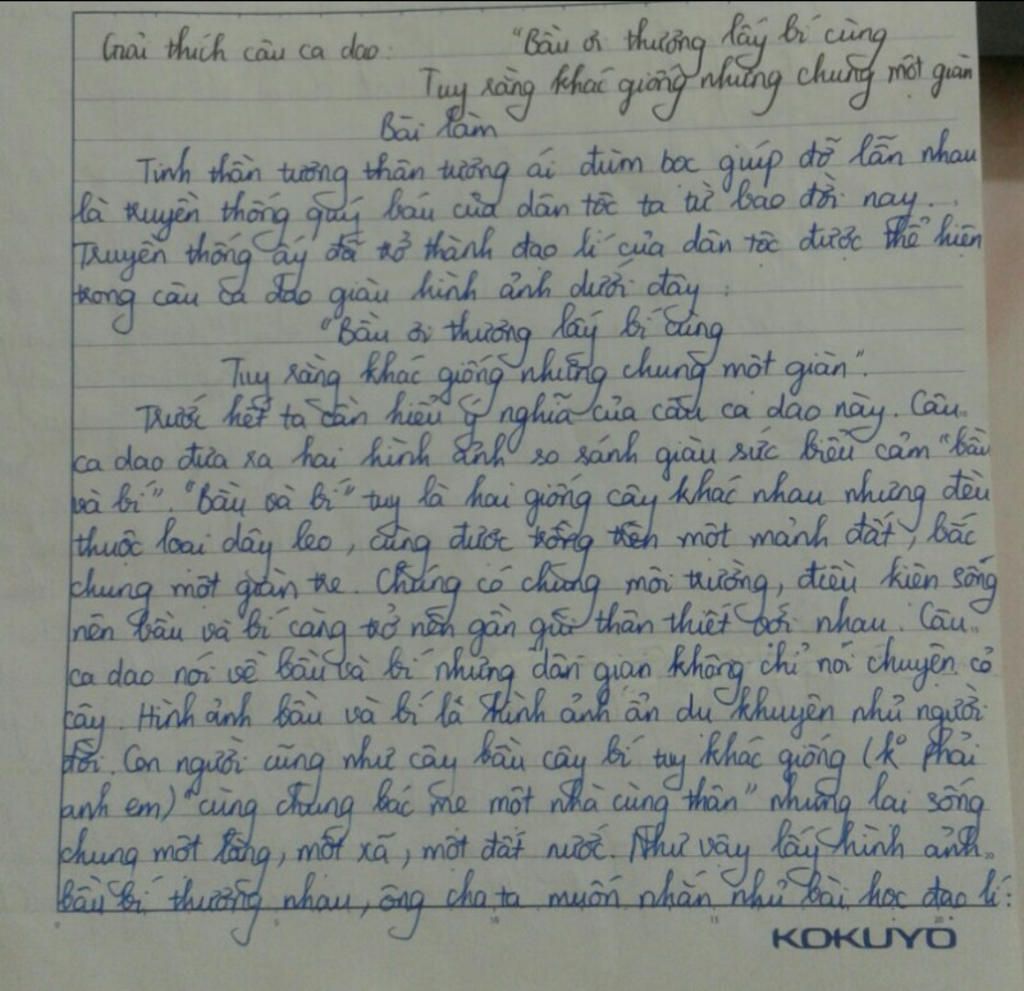 Giải thích câu ca dao: "Bầu ơi thương lấy bí cùng
Tuy rằng khác giống nhưng chung một giàn
Bài làm
Tinh thần tương thân tương ái đùm bọc giúp đỡ lẫn nhau
là truyền thống quý báu của dân tộc ta từ bao đời nay.
Truyền thống ấy đã trở thành đạo lí của dân tộc được thể hiện
trong câu ca dao giàu hình ảnh dưới đây:
"Bầu ơi thương lấy bí cùng
Tuy rằng khác giống nhưng chung một giàn".
Trước hết ta cần hiểu ý nghĩa của câu ca dao này. Câu
ca dao đưa ra hai hình ảnh so sánh giàu sức biểu cảm "bầu
và bí". "Bầu và bí" tuy là hai giống cây khác nhau nhưng đều
thuộc loại dây leo, cùng được trồng trên một mảnh đất, bắc
chung một giàn tre. Chúng có chung môi trường, điều kiện sống
nên bầu và bí càng trở nên gần gũi thân thiết với nhau. Câu
ca dao nói về bầu và bí nhưng dân gian không chỉ nói chuyện cỏ
cây. Hình ảnh bầu và bí là hình ảnh ẩn dụ khuyên nhủ người
đời. Con người cũng như cây bầu cây bí tuy khác giống (k° phải
anh em) "cùng chung bác mẹ một nhà cùng thân" nhưng lại sống
chung một làng, một xã, một đất nước. Như vậy lấy hình ảnh
bầu bí thương nhau, ông cha ta muốn nhắn nhủ bài học đạo lí:
KOKUYO